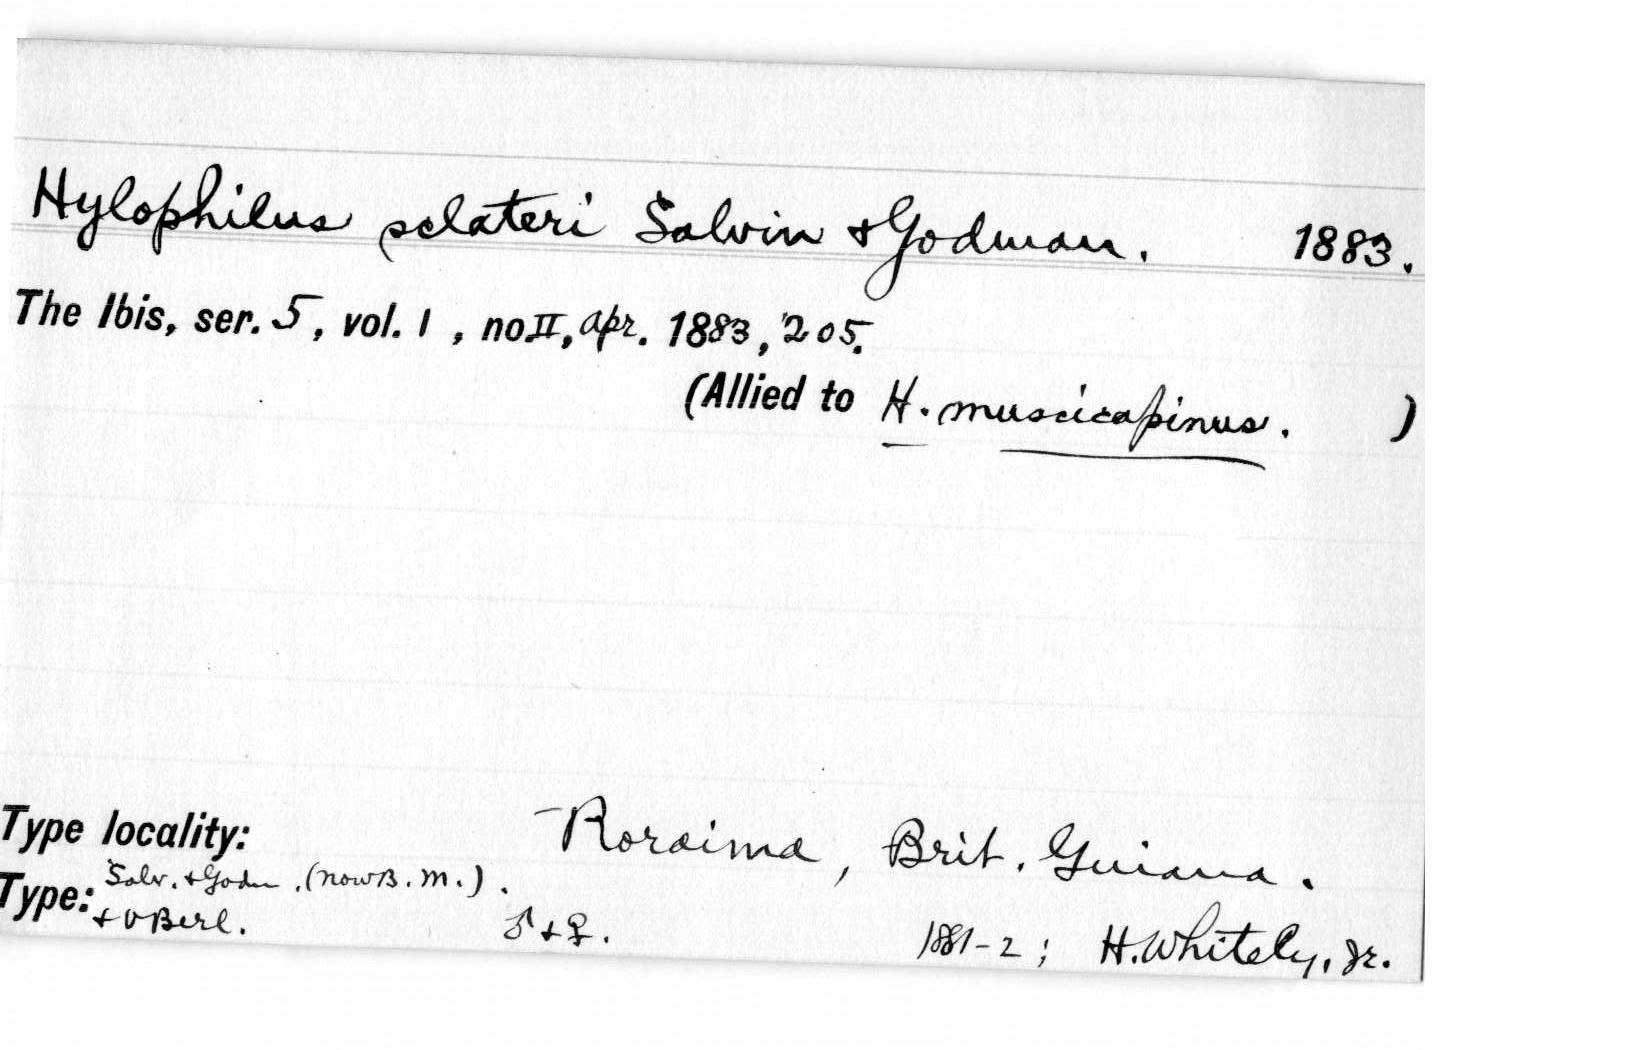 Hylophilus sclateri Salvin & Godman. 1883.
The Ibis, ser. 5, vol. 1, no. II, Apr. 1883, 205.
(Allied to H. muscicapinus. )
Type locality: Roraima, Brit. Guiana.
Type: Salv. & Godm. (now B. M.).
& v Berl. ♂ & ♀. 1881-2; H. Whitely, Jr.